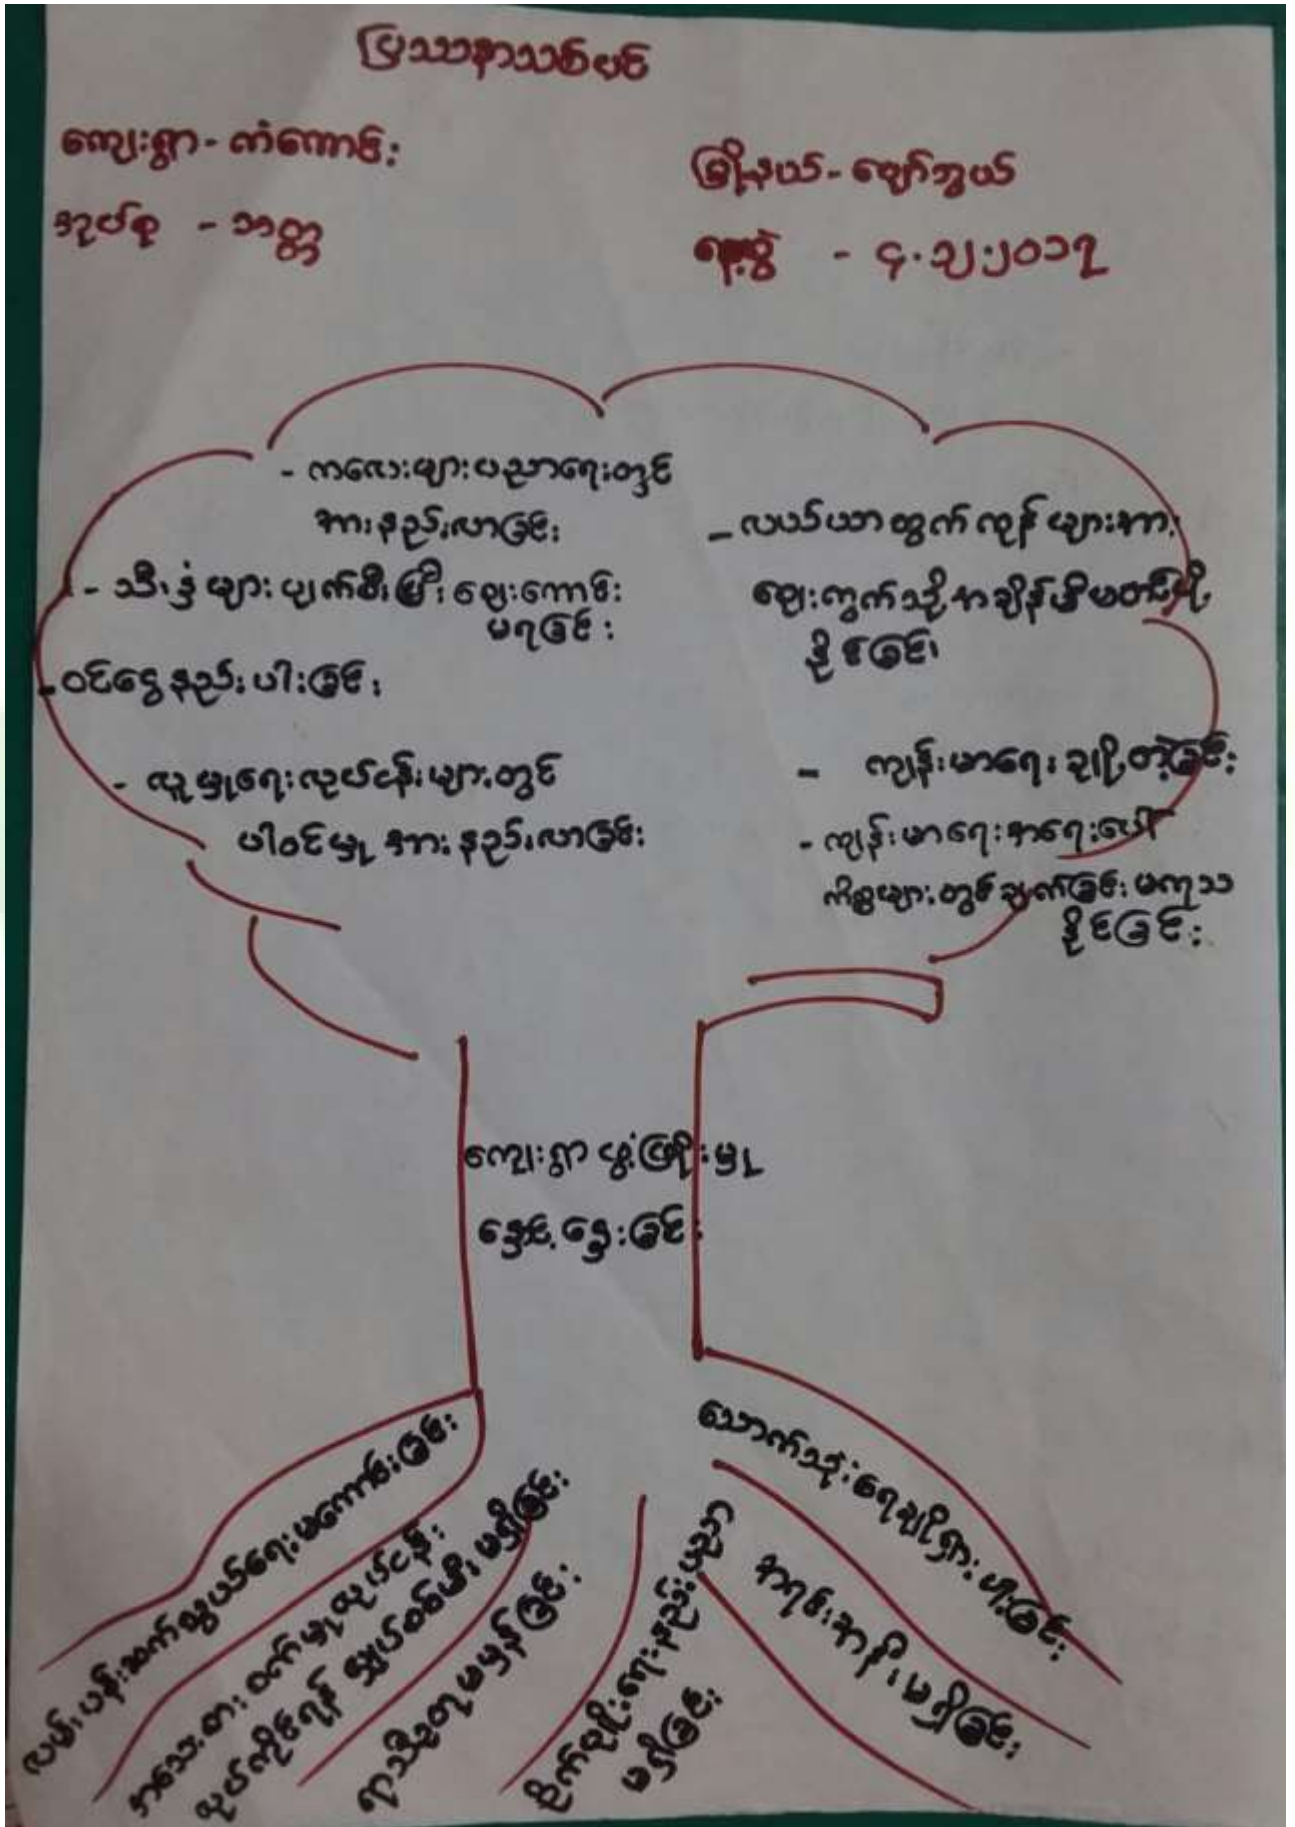 ပြဿနာသစ်ပင်
ကျေးရွာ - ကံကောင်း
မြို့နယ် - ဇျော်ဘွယ်
အုပ်စု - ဘတ္တ
ရက်စွဲ - ၄.၁၂.၂၀၁၇
- ကလေးများပညာရေးတွင်
အားနည်းလာခြင်း
- သီးနှံများပျက်စီးပြီး ဈေးကောင်း
မရခြင်း
- ဝင်ငွေနည်းပါးခြင်း
- လူမှုရေးလုပ်ငန်းများတွင်
ပါဝင်မှုအားနည်းလာခြင်း
- လယ်ယာထွက်ကုန်များအား
ဈေးကွက်သို့အချိန်မီမတင်ပို့
နိုင်ခြင်း
- ကျန်းမာရေးချို့တဲ့ခြင်း
- ကျန်းမာရေးအရေးပေါ်
ကိစ္စများတွင်ချက်ခြင်းမကုသ
နိုင်ခြင်း
ကျေးရွာဖွံ့ဖြိုးမှု
နှောင့်နှေးခြင်း
လမ်းပန်းဆက်သွယ်ရေးမကောင်းခြင်း
အသေးစားစက်မှုလုပ်ငန်း
လုပ်ကိုင်ရန် လျှပ်စစ်မီးမရှိခြင်း
ရာသီဥတုမမှန်ခြင်း
စိုက်ပျိုးရေးနည်းပညာ
မရှိခြင်း
အရင်းအနှီးမရှိခြင်း
သောက်သုံးရေချို့ရှားပါးခြင်း